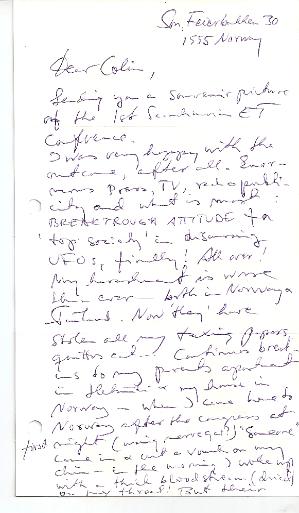 30
1335 Norway
Dear Colin,
Sending you a souvenir picture
of the 1st Scandinavian ET
Conference.
I was very happy with the
outcome, after all. Enor-
mous Press, TV, radio publi-
city and what is more:
BREAKTROUGH ATTITUDE of a
'top society' in discussing
UFOs, finally! All over!
My harassment is worse
than ever – both in Norway &
Finland. Now 'they' have
stolen all my taxing papers,
quittos ect. Continues break-
ins to my parents apartment
in Helsinki & my home in
Norway – when I came here to
Norway after the congress at
first night (using "someone"
came in & cut a wound on my
chin – in the morning I woke up
with a thick bloodstream (dried)
on my throat! But their